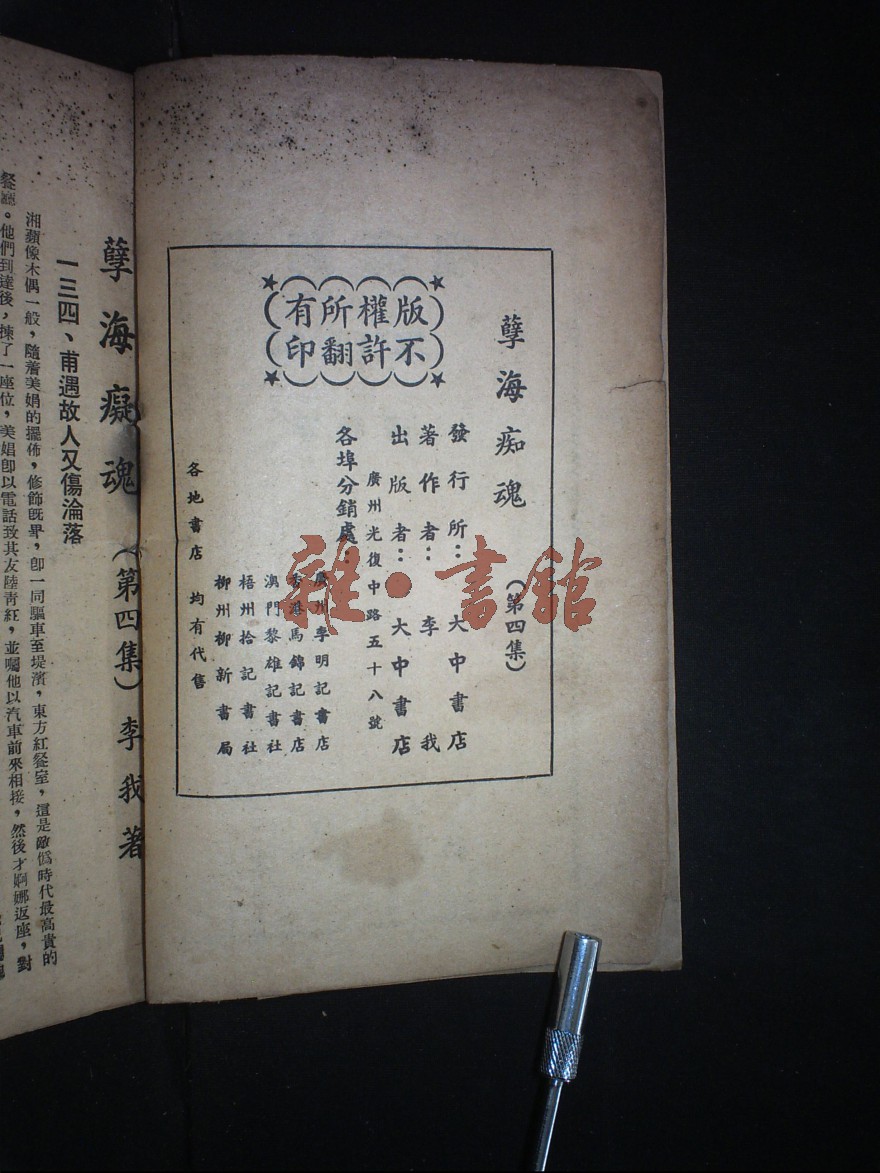 孽海痴魂 (第四集)
發行所：大中書店
著作者：李我
出版者：大中書店
廣州光復中路五十八號
各埠分銷處：
廣州李明記書店
香港馬錦記書店
澳門黎雄記書社
梧州拾記書社
柳州柳新書局
各地書店 均有代售
版權所有
不許翻印
雜·書館
孽海癡魂 (第四集) 李我著
一三四、甫遇故人又傷淪落
湘蘋像木偶一般，隨着美娟的擺佈，修飾既畢，卽一同驅車至堤濱，東方紅餐室，這是敵僞時代最高貴的
餐廳。他們到達後，揀了一座位，美娟卽以電話致其友陸靑紅，並囑他以汽車前來相接，然後才婀娜返座，對